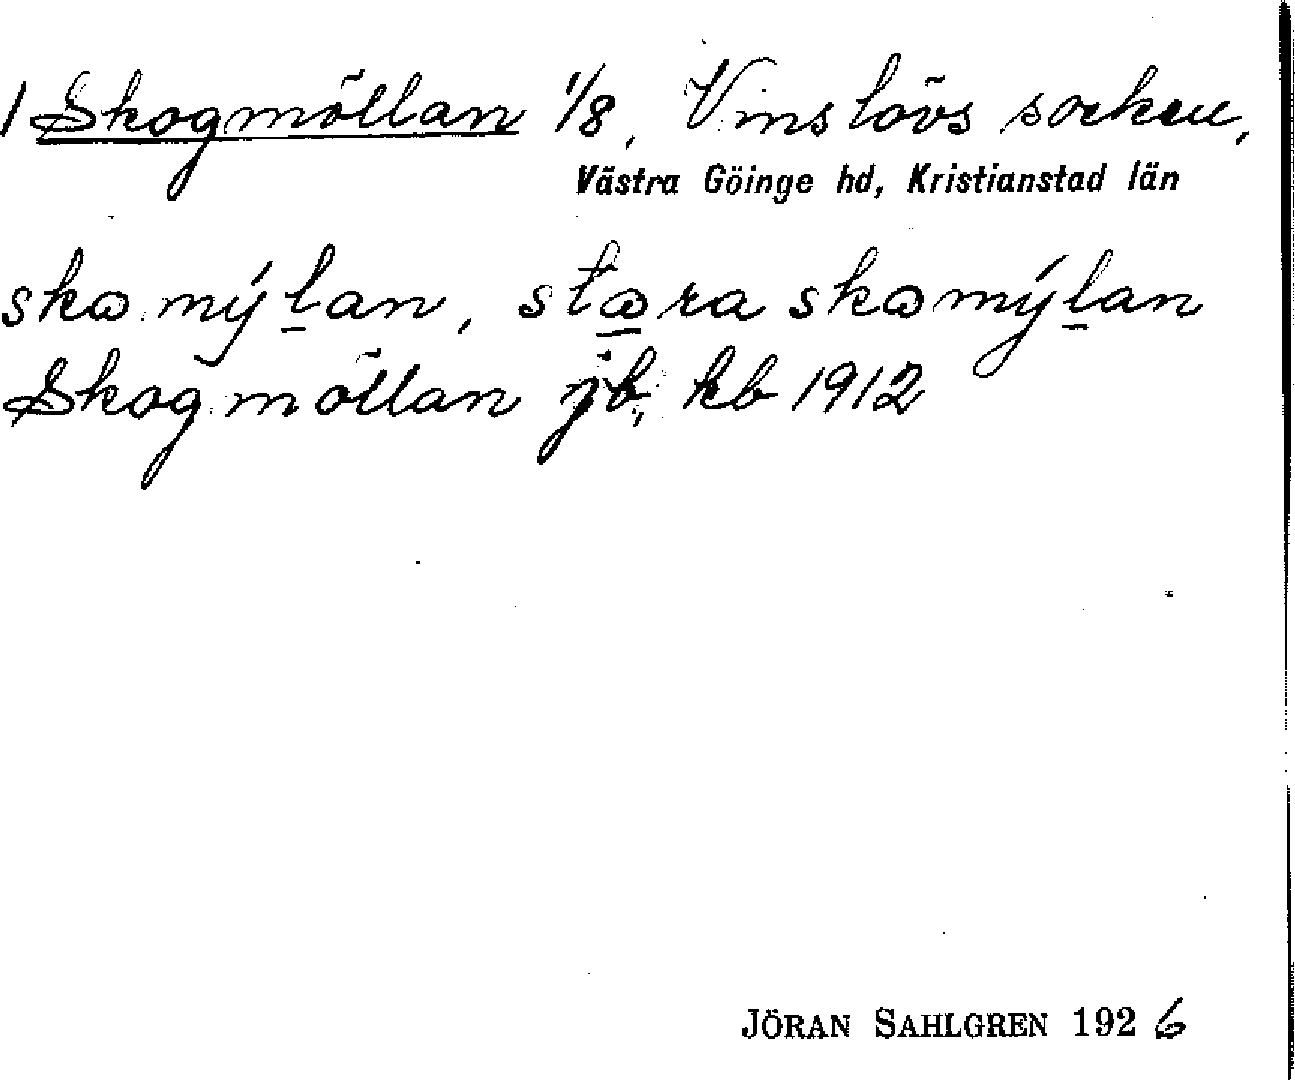 1 Skogmöllan 1/8, Vinslövs socken,
Västra Göinge hd, Kristianstad län
skɷmýl̲an, stɷ̲ra skɷmýl̲an
Skogmöllan jb, kb 1912
JÖRAN SAHLGREN 1926